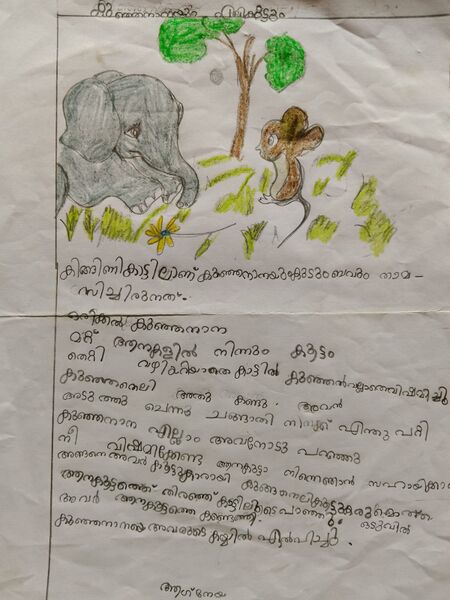 കുഞ്ഞനാനയും എലിക്കുട്ടനും
കിങ്ങിണികാട്ടിലാണ് കുഞ്ഞനാനയുംകുടുംബവും താമ-
സിച്ചിരുന്നത്.
ഒരിക്കൽ കുഞ്ഞനാന
മറ്റ് ആനകളിൽ നിന്നും കൂട്ടം
തെറ്റി വഴിയറിയാതെ കാട്ടിൽ കുഞ്ഞൻവല്ലാതെവിഷമിച്ചു
കുഞ്ഞനെലി അതു കണ്ടു. അവൻ
അടുത്തു ചെന്നു ചങ്ങാതി നിനക്ക് എന്തു പറ്റി
കുഞ്ഞനാന എല്ലാം അവനോടു പറഞ്ഞു
നീ വിഷമിക്കേണ്ട ആനകുട്ടാ നിന്നെഞാൻ സഹായിക്കാം
അങ്ങനെ അവർ കൂട്ടുകാരായി
ആനകൂട്ടത്തെ തിരഞ്ഞ് കാട്ടിലൂടെ പാഞ്ഞു. ഒടുവിൽ
അവർ ആനകൂട്ടത്തെ കണ്ടെത്തി.
കുഞ്ഞനാനയെ അവരുടെ കയ്യിൽ ഏൽപിച്ചു.
ആഗ്നേയ